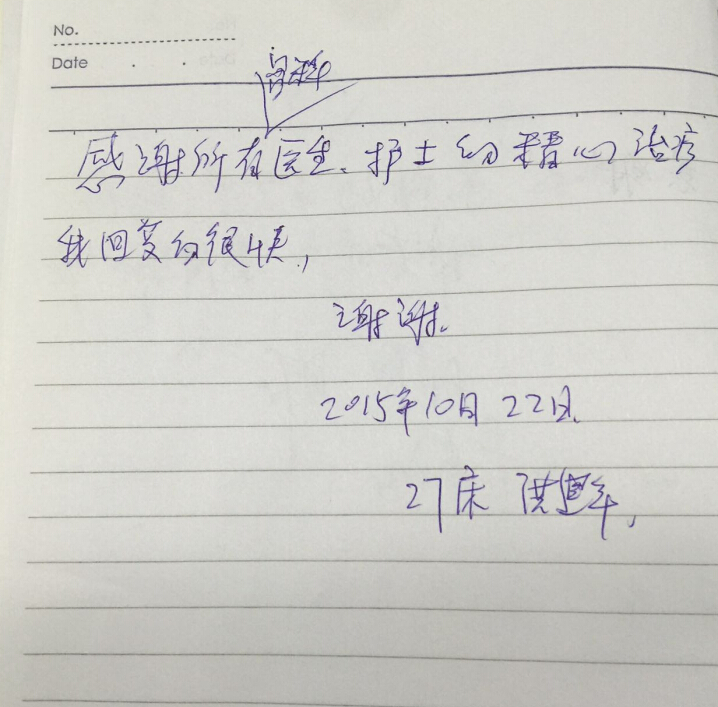 No.
Date
骨科
感谢所有医生、护士的精心治疗
我回复的很快,
谢谢.
2015年10月22日.
27床 洪